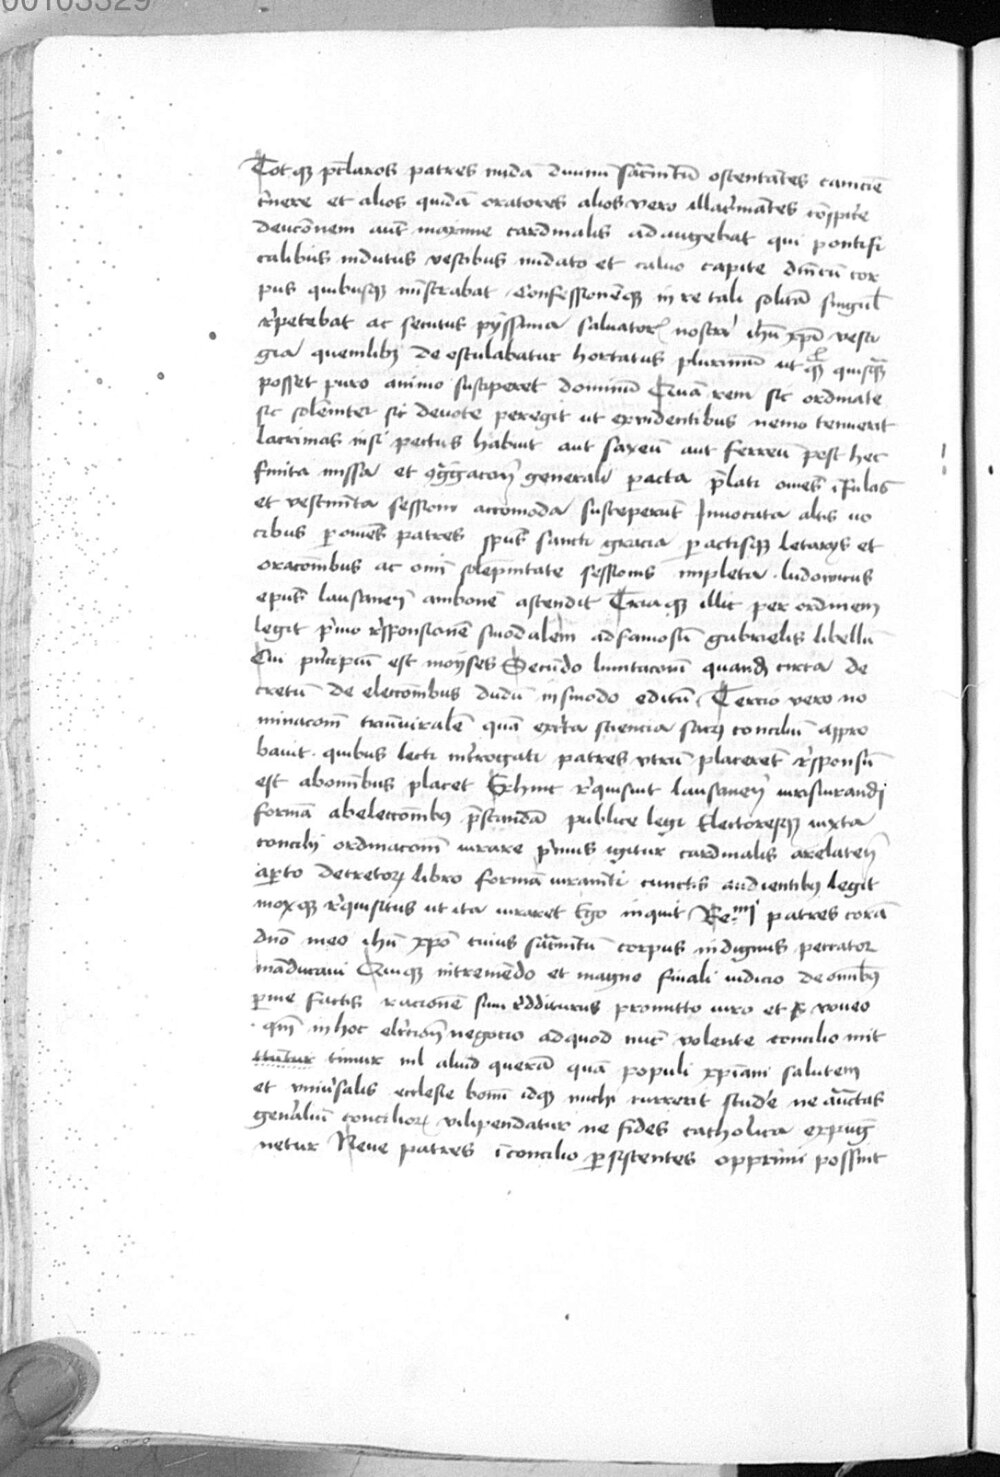 00103329
Tot q₃ p̄claros patres nudā duum sacmītū ostentātes camicie
t'nere et alios quidā oratores alios vero illac'mātes cōspic'e
deucōnem aut maxime cardinalis ad augebat qui pontifi
calibus indutus vestibus nudato et caluo capite dm̄cū cor
pus quibusq₃ mīstrabat Confessionēq₃ in re tali solitā singul
r'petebat ac secutus pyissima saluator nostri ihū xp̄i vesti
gia quemlib₃ de osculabatur hortatus plurimū ut quisq̄₃
posset puro animo susciperet dominū Quā rem sic ordinate
sic solēniter sic deuote peregit ut ex videntibus nemo tenuerit
lacrimas nisi pectus habuit aut saxeū aut ferreū post hec
finita missa et ꝯg̅gacōn generali pacta p̄lati om̄es īfulas
et vestimēta sessioni accōmoda susceperūt Inuocata altis uo
cibus p om̄es patres sp̄us sancti gracia pactisq₃ letanys et
oracōnibus ac om̄i solēpnitate sessionis impleta . ludowicus
ep̄us lausaneñ ambonē ascendit Triaq₃ illic per ordinem
legit p'mo r'sponsionē sinodalem ad famosū gabrielis libellū
Cui p'ncipiū est moyses Secūdo limitacōnē quandā circa de
cretū de eleccōnibus dudū in sinodo editū Tercio vero no
minacōnē triūviralē quā ex c'ta sciencia sacrū conciliū appro
bauit . quibus lectis int'rogati patres vtrū placeret r'sponsū
est ab om̄ibus placet Exhinc r'quisiuit lausaneñ iurisiurandi
formā ab eleccōnib₃ p̄standā publice legi Electoresq₃ iuxta
concilij ordinacōm iurare p'mus igitur cardinalis arelateñ
ap̄to decretor libro formā iuramēti cunctis audientib₃ legit
moxq₃ r'quisitus ut ita iuraret Ego inquit Reᵐⁱ patres corā
dn̄o meo ihū xp̄o cuius sacmītū corpus indignus peccator
māducaui Quiq₃ in tremēdo et magno finali iudicio de om̄ib₃
p me factis racionē sum r'dditurus promitto iuro et voueo
qm̄ in hoc elccōnis negocio ad quod nūc volente concilio mit
ttuntur timur nil aliud querā quā populi xp̄iani salutem
et vniu'salis ecclesie bonū idq₃ michi curre erit stud'e ne auctas
gen'aliū concilior vilipendatur ne fides catholica expug
netur Neue patres ī concilio psistentes opprimi possint